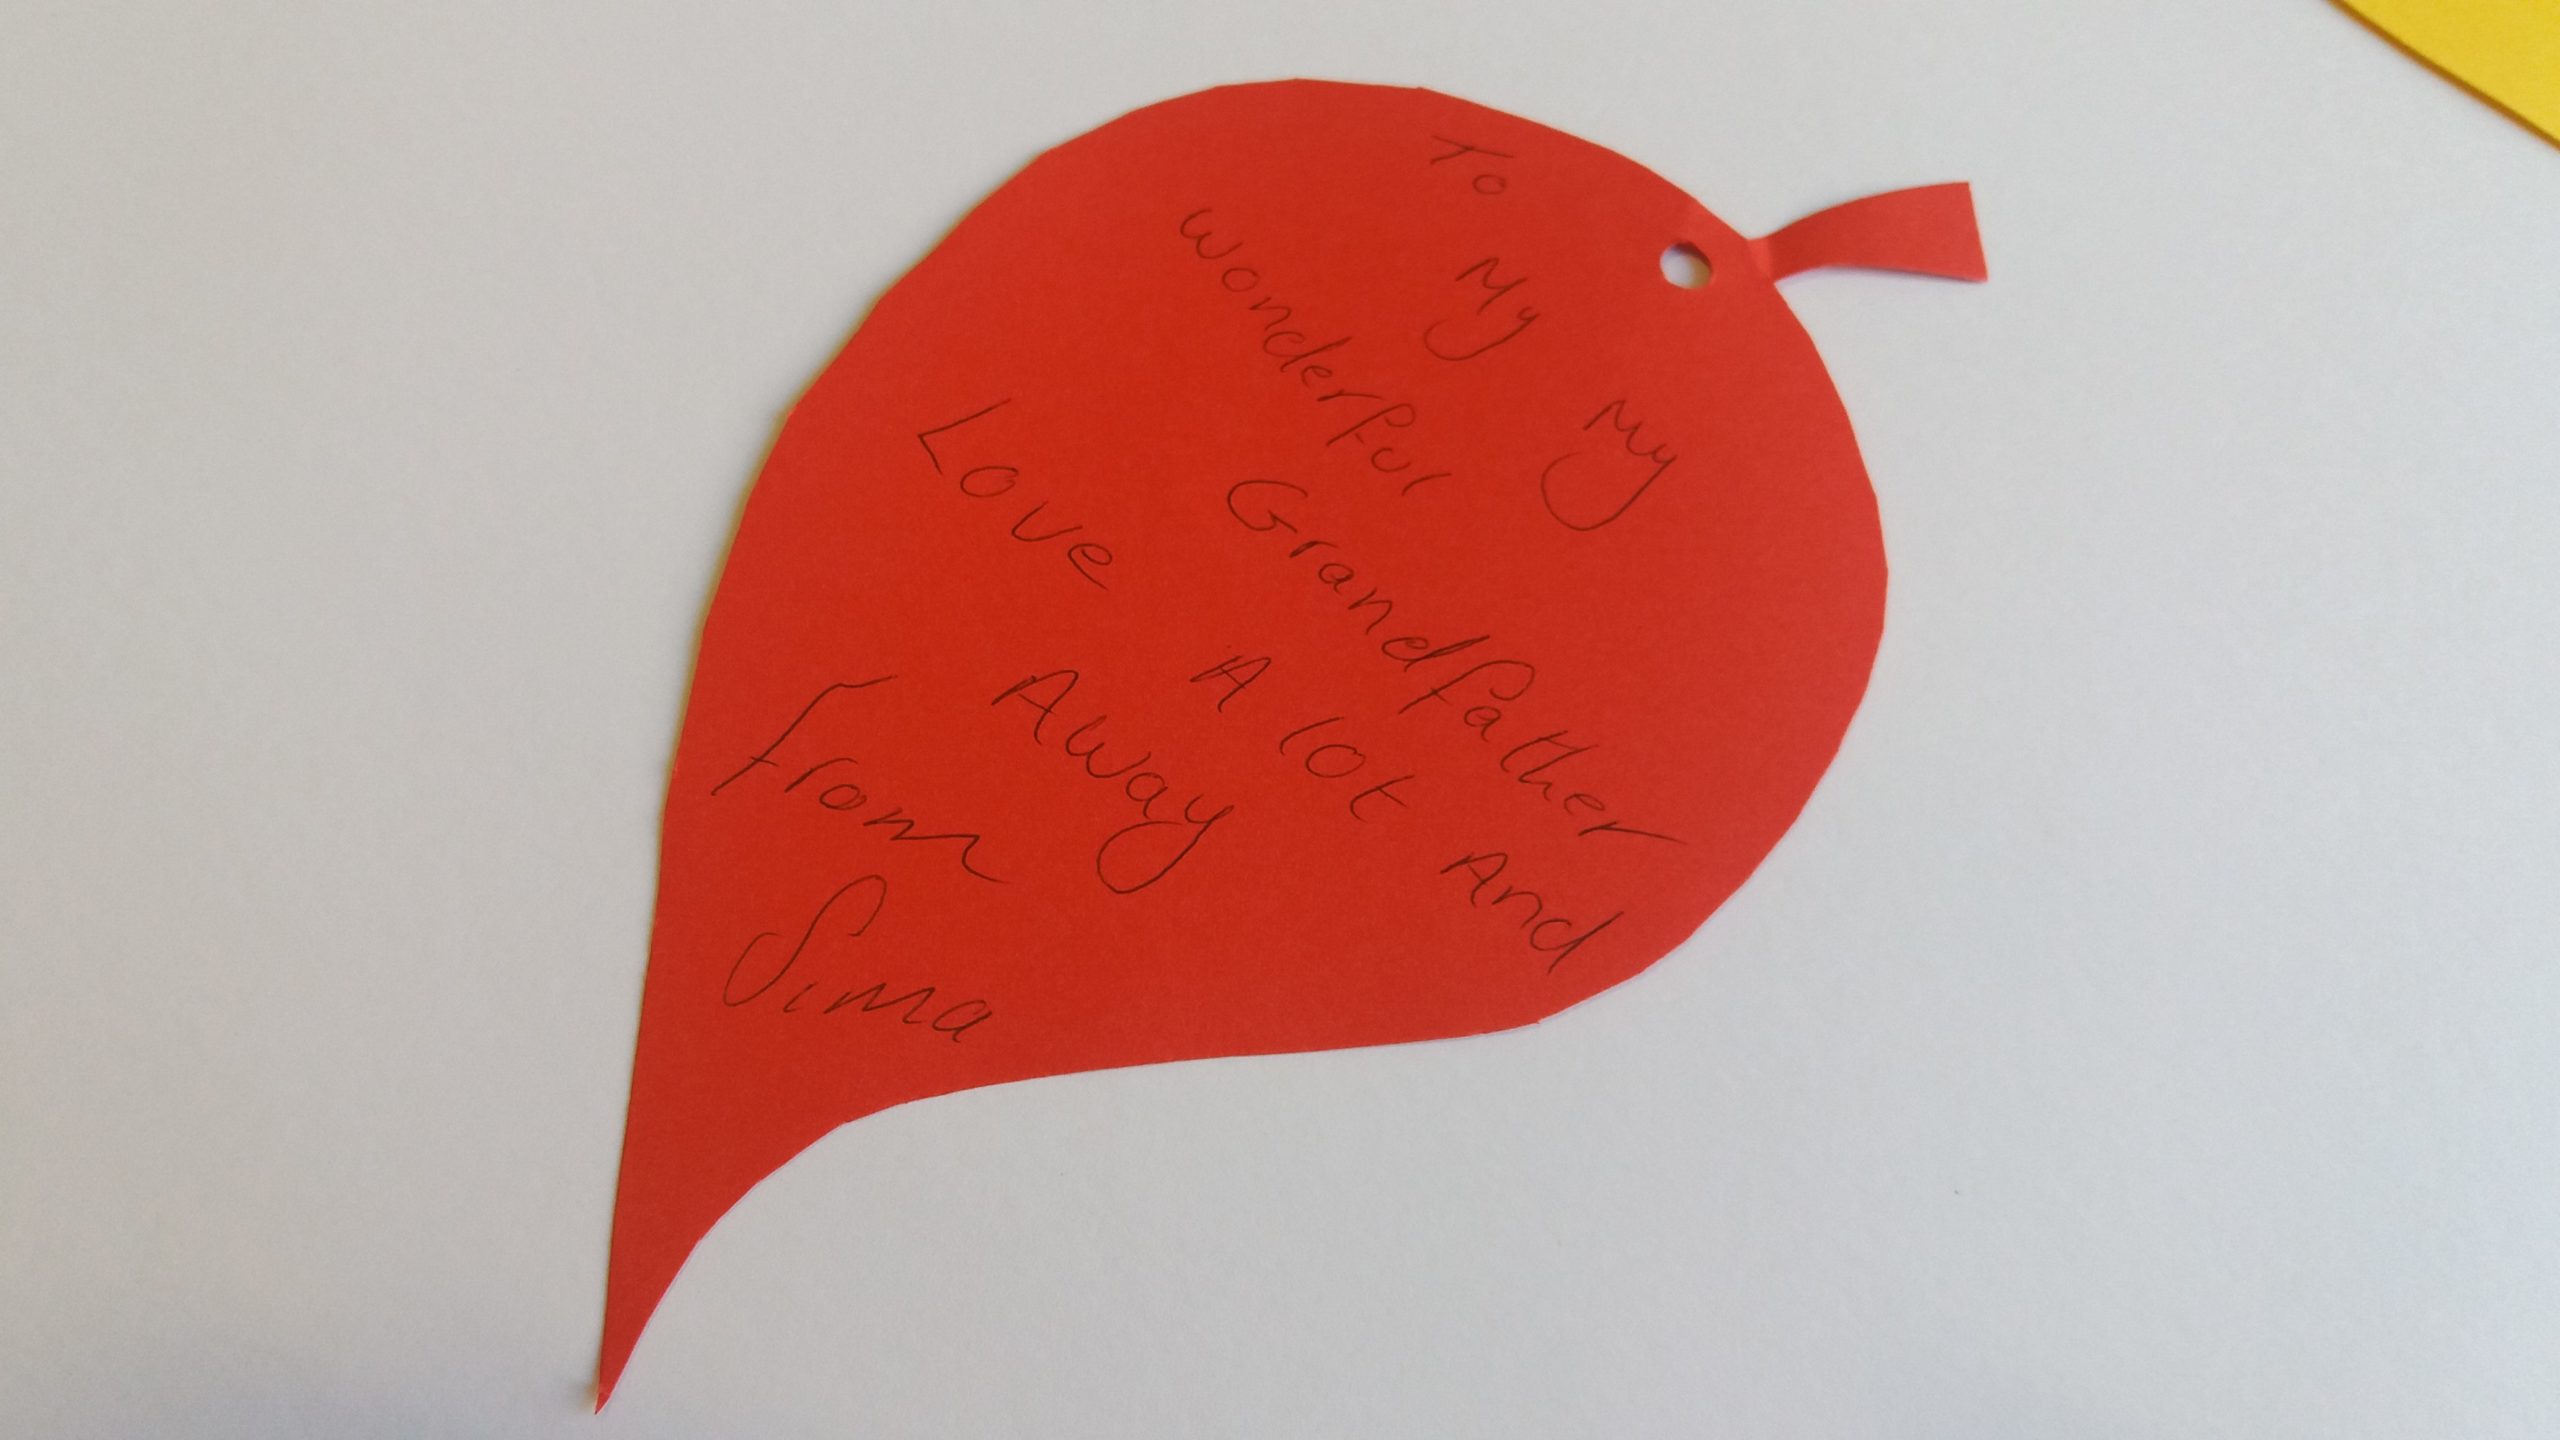 To
My My
wonderful
Grandfather
Love A lot And
Away
From
Sima